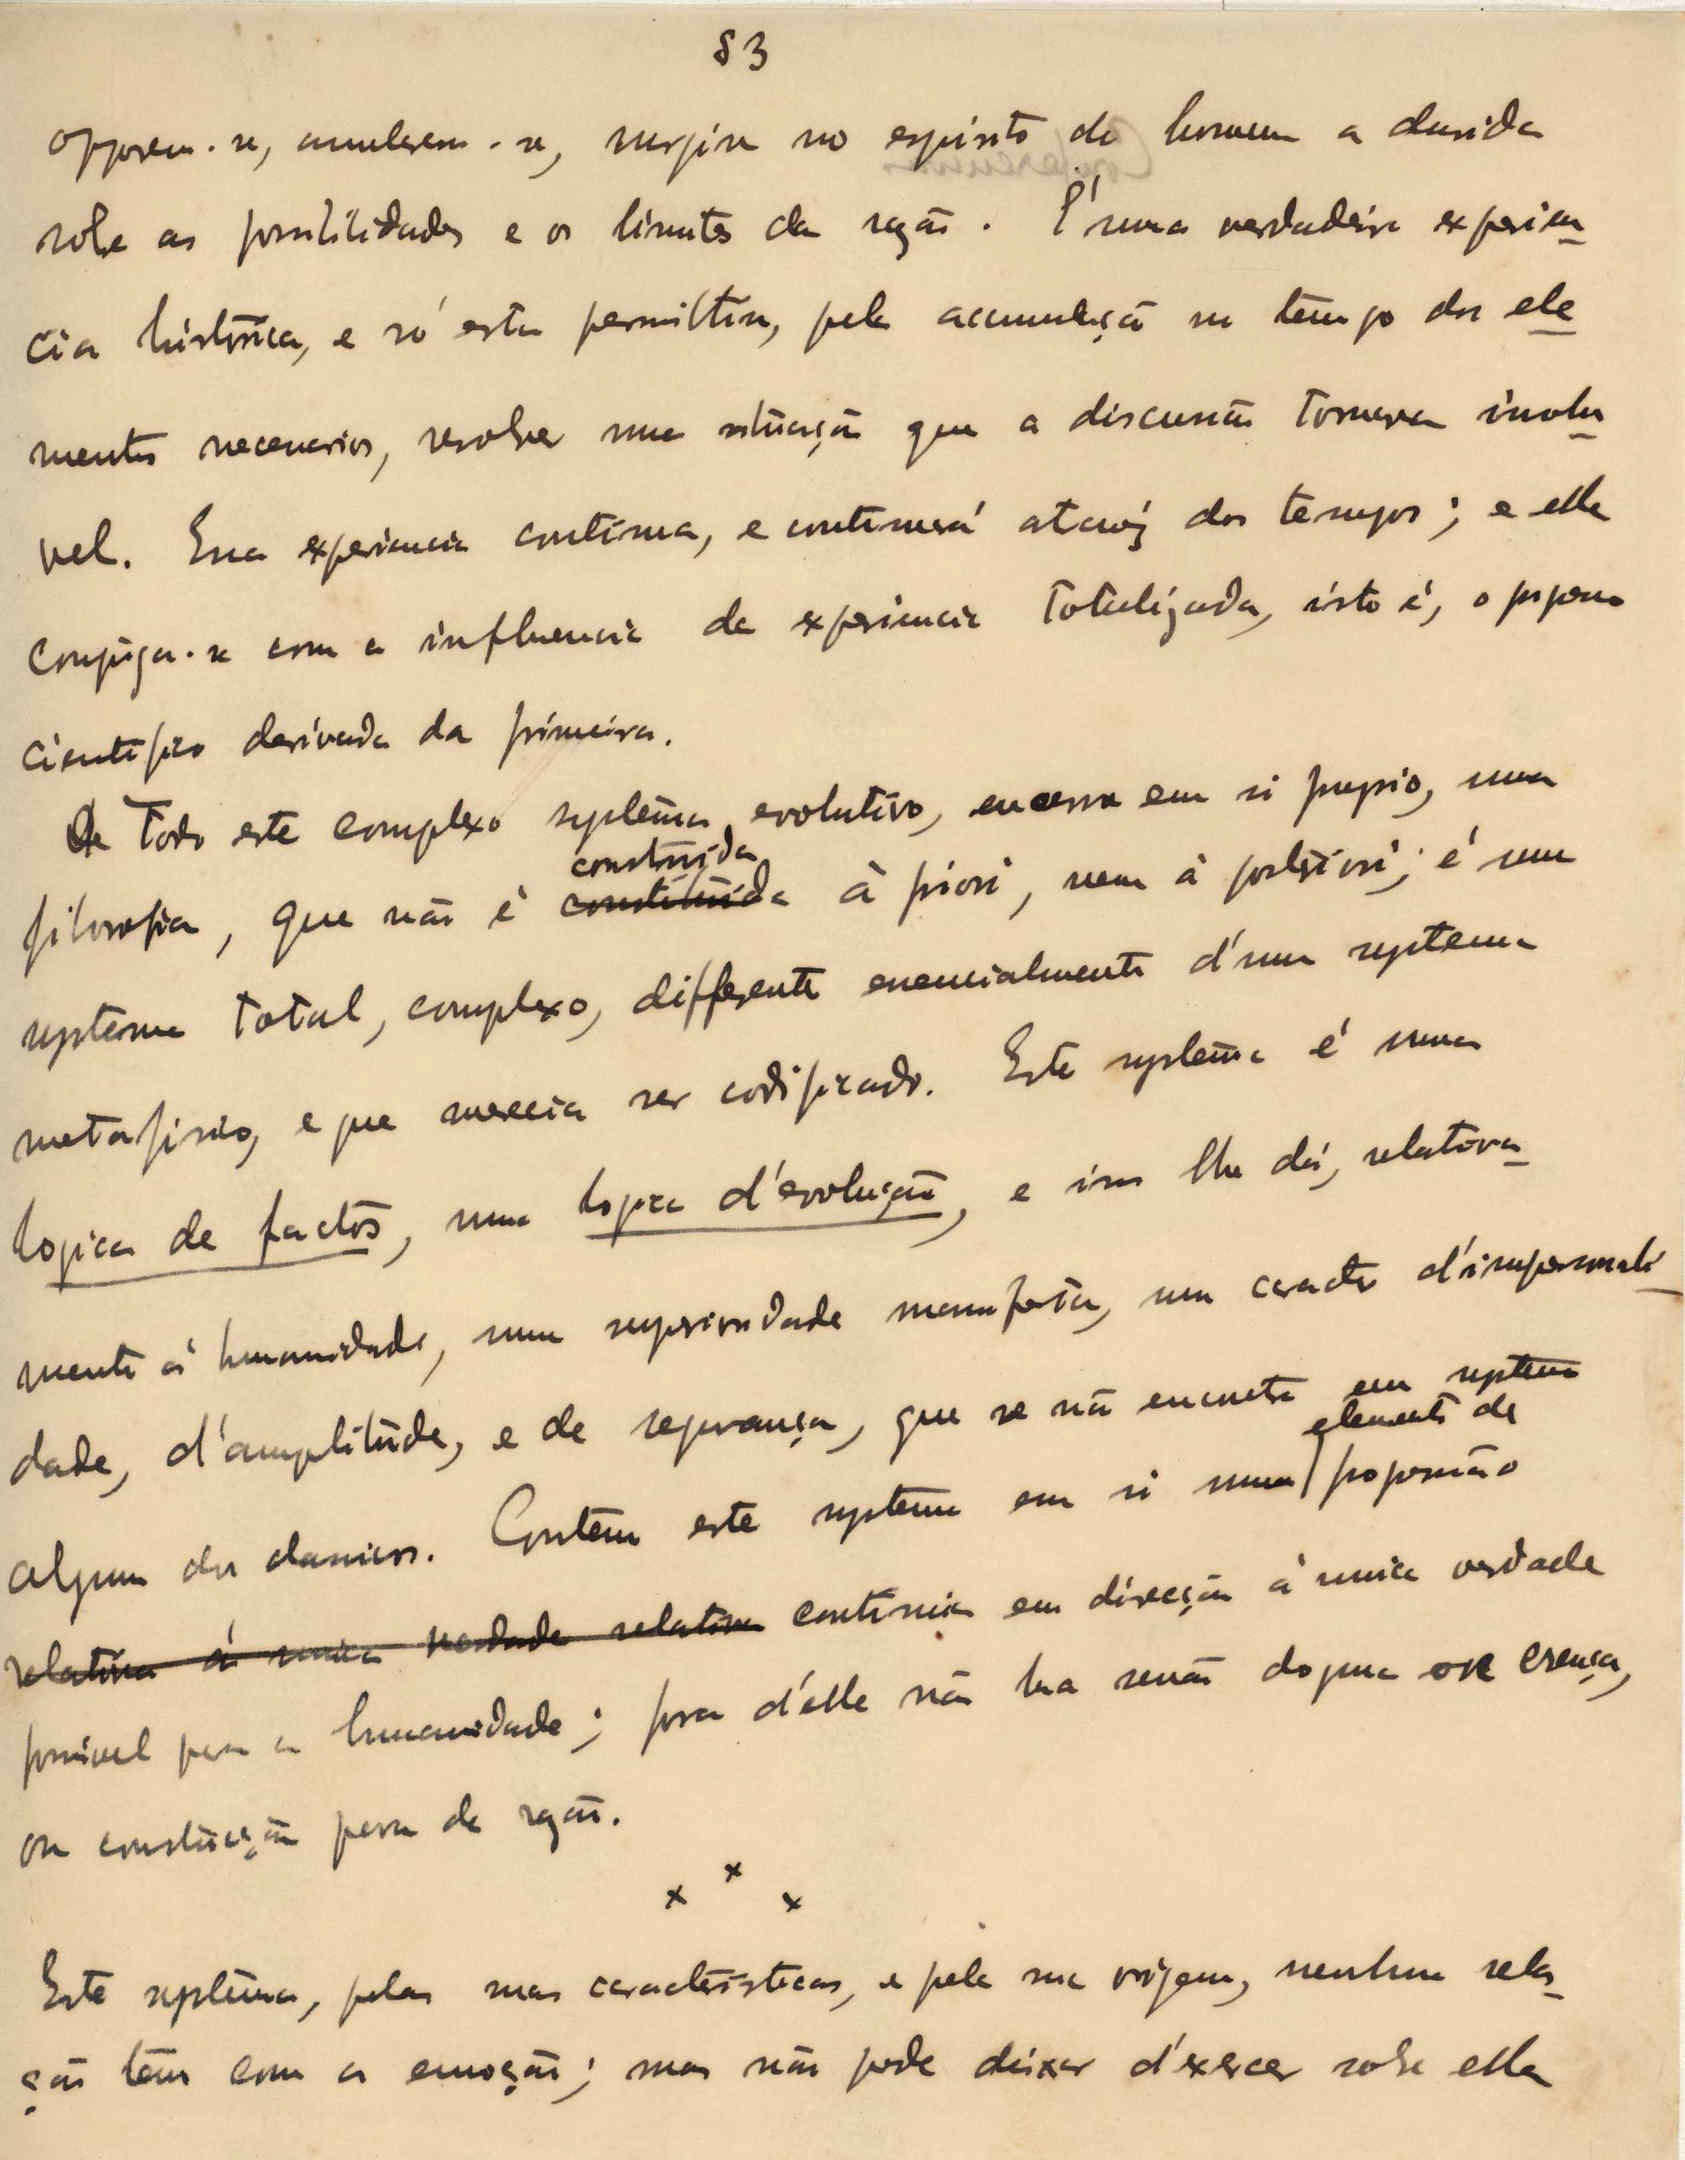 83
oppoem-se, annularem-se, surgira no espirito do homem a duvida
sobre as possibilidades e os limites da razão. É uma verdadeira experien
cia histórica, e só esta permittira, pela accumulação no tempo dos ele
mentos necessarios, resolver uma situação que a discussão tornava insolu
vel. Essa experiencia continua, e continuará atravéz dos tempos; e ella
conjuga-se com a influencia da experiencia totalizada, isto é, o processo
cientifico derivada da primeira.
De Todo este complexo systema evolutivo, encerra em si proprio, uma
construida
filosofia, que não é constituida à priori, nem à posteriori; é um
systema total, complexo, differente essencialmente d'um systema
metafisico, e que merecia ser codificado. Este systema é uma
logica de factos, uma logica d'evolução, e isso lhe dá, relativa
mente á humanidade, uma superioridade manifesta, um caracter d'impersonali
dade, d'amplitude, e de segurança, que se não encontra em systema
elemento de
algum dos classicos. Contem este systema em si uma proporção
relativa á unica verdade relativa continua em direcção á unica verdade
possivel para a humanidade; fora d'elle não ha senão dogma ou crença,
ou construcção pura da razão.
x x x
Este systema, pelas suas caracteristicas, e pela sua origem, nenhuma rela
ção têm com a emoção; mas não pode deixar d'exercer sobre ella